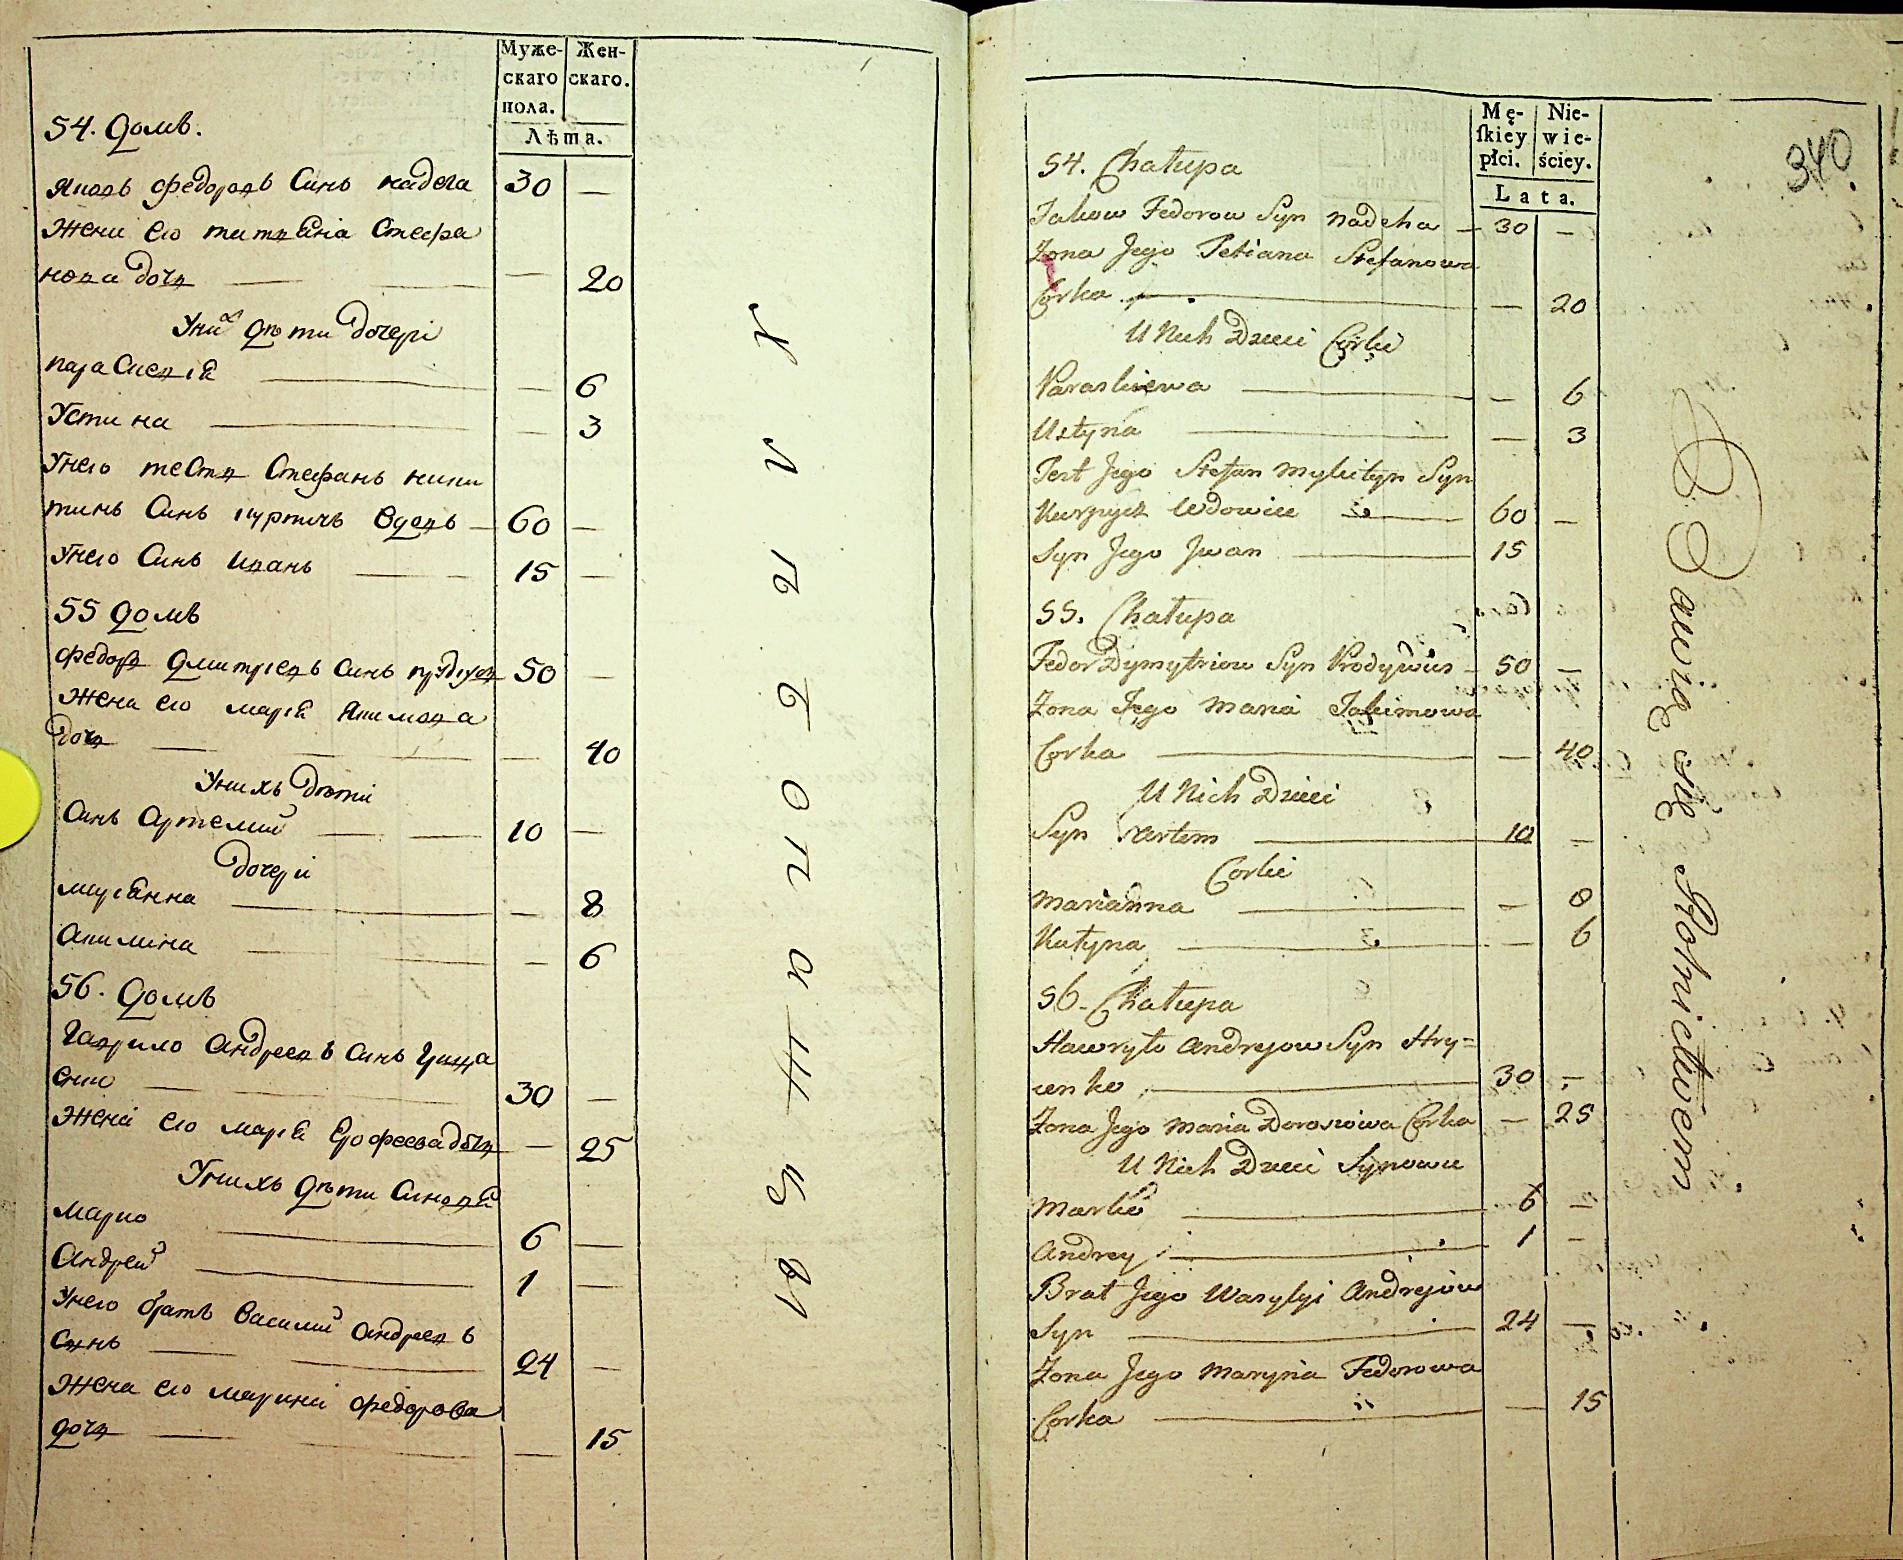 Муже-
скаго
пола.
Жен-
скаго.
Лѣта.
54. Домъ.
Яковъ Федоровъ Синъ надега 30 —
Жена его титѣяна Стефа
нова дочъ — 20
Уних дѣти дочері
параскевія — 6
Устина — 3
Унего тестъ Стефанъ ники
тинъ Синъ вдовъ — 60 —
Унего Синъ Иванъ 15 —
55 Домъ
Федоръ Дмитріевъ Синъ 50 —
Жена его марія Якимова
дочъ — 40
Унихъ дѣти
Синъ Артемий 10 —
дочері
маріянна — 8
Акилина — 6
56. Домъ
Гаврило Андреевъ Синъ Грица
енко 30 —
Жена его марія Ерофеева дочъ — 25
Унихъ дѣти Синовя
Марко 6 —
Андрей 1 —
Унего братъ Василий Андреевъ
Синъ 24 —
Жена его марина Федорова
дочъ — 15
Mę-
skiey
płci.
Nie-
wie-
ściey.
Lata.
340
54. Chałupa
Jakow Fedorow Syn Nadeha — 30 —
Żona Jego Tetiana Stefanowa
Corka — 20
U Nich Dzieci Corki
Paraskiewa — 6
Ustyna — 3
Test Jego Stefan Mykityn Syn
Wdowiec 60 —
Syn Jego Jwan 15
55. Chałupa
Fedor Dymytriow Syn 50 —
Żona Jego Maria Jakimowa
Corka — 40
U Nich Dzieci
Syn Artem 10 —
Corki
Marianna — 8
Kułyna — 6
56. Chałupa
Hawryło Andrejow Syn Hry=
cenko 30 —
Żona Jego Maria Doroszowa Corka — 25
U Nich Dzieci Synowie
Marko 6 —
Andrey 1 —
Brat Jego Wasylyi Andrejow
Syn 24 —
Żona Jego Maryna Fedorowa
Corka — 15
Bawię się Rolnictwem